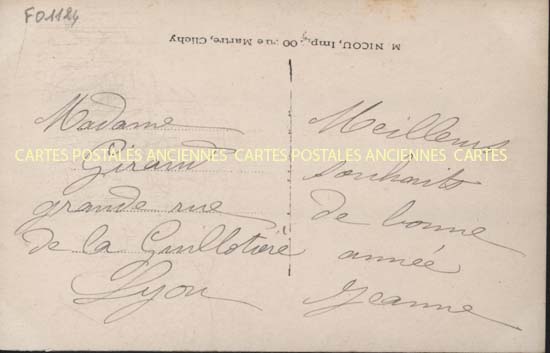 F01124
M NICOU, Imp., 00 rue Martre, Clichy
Madame
Girard
grande rue
de la Guillotière
Lyon
Meilleurs
souhaits
de bonne
année
Jeanne
CARTES POSTALES ANCIENNES CARTES POSTALES ANCIENNES CARTES